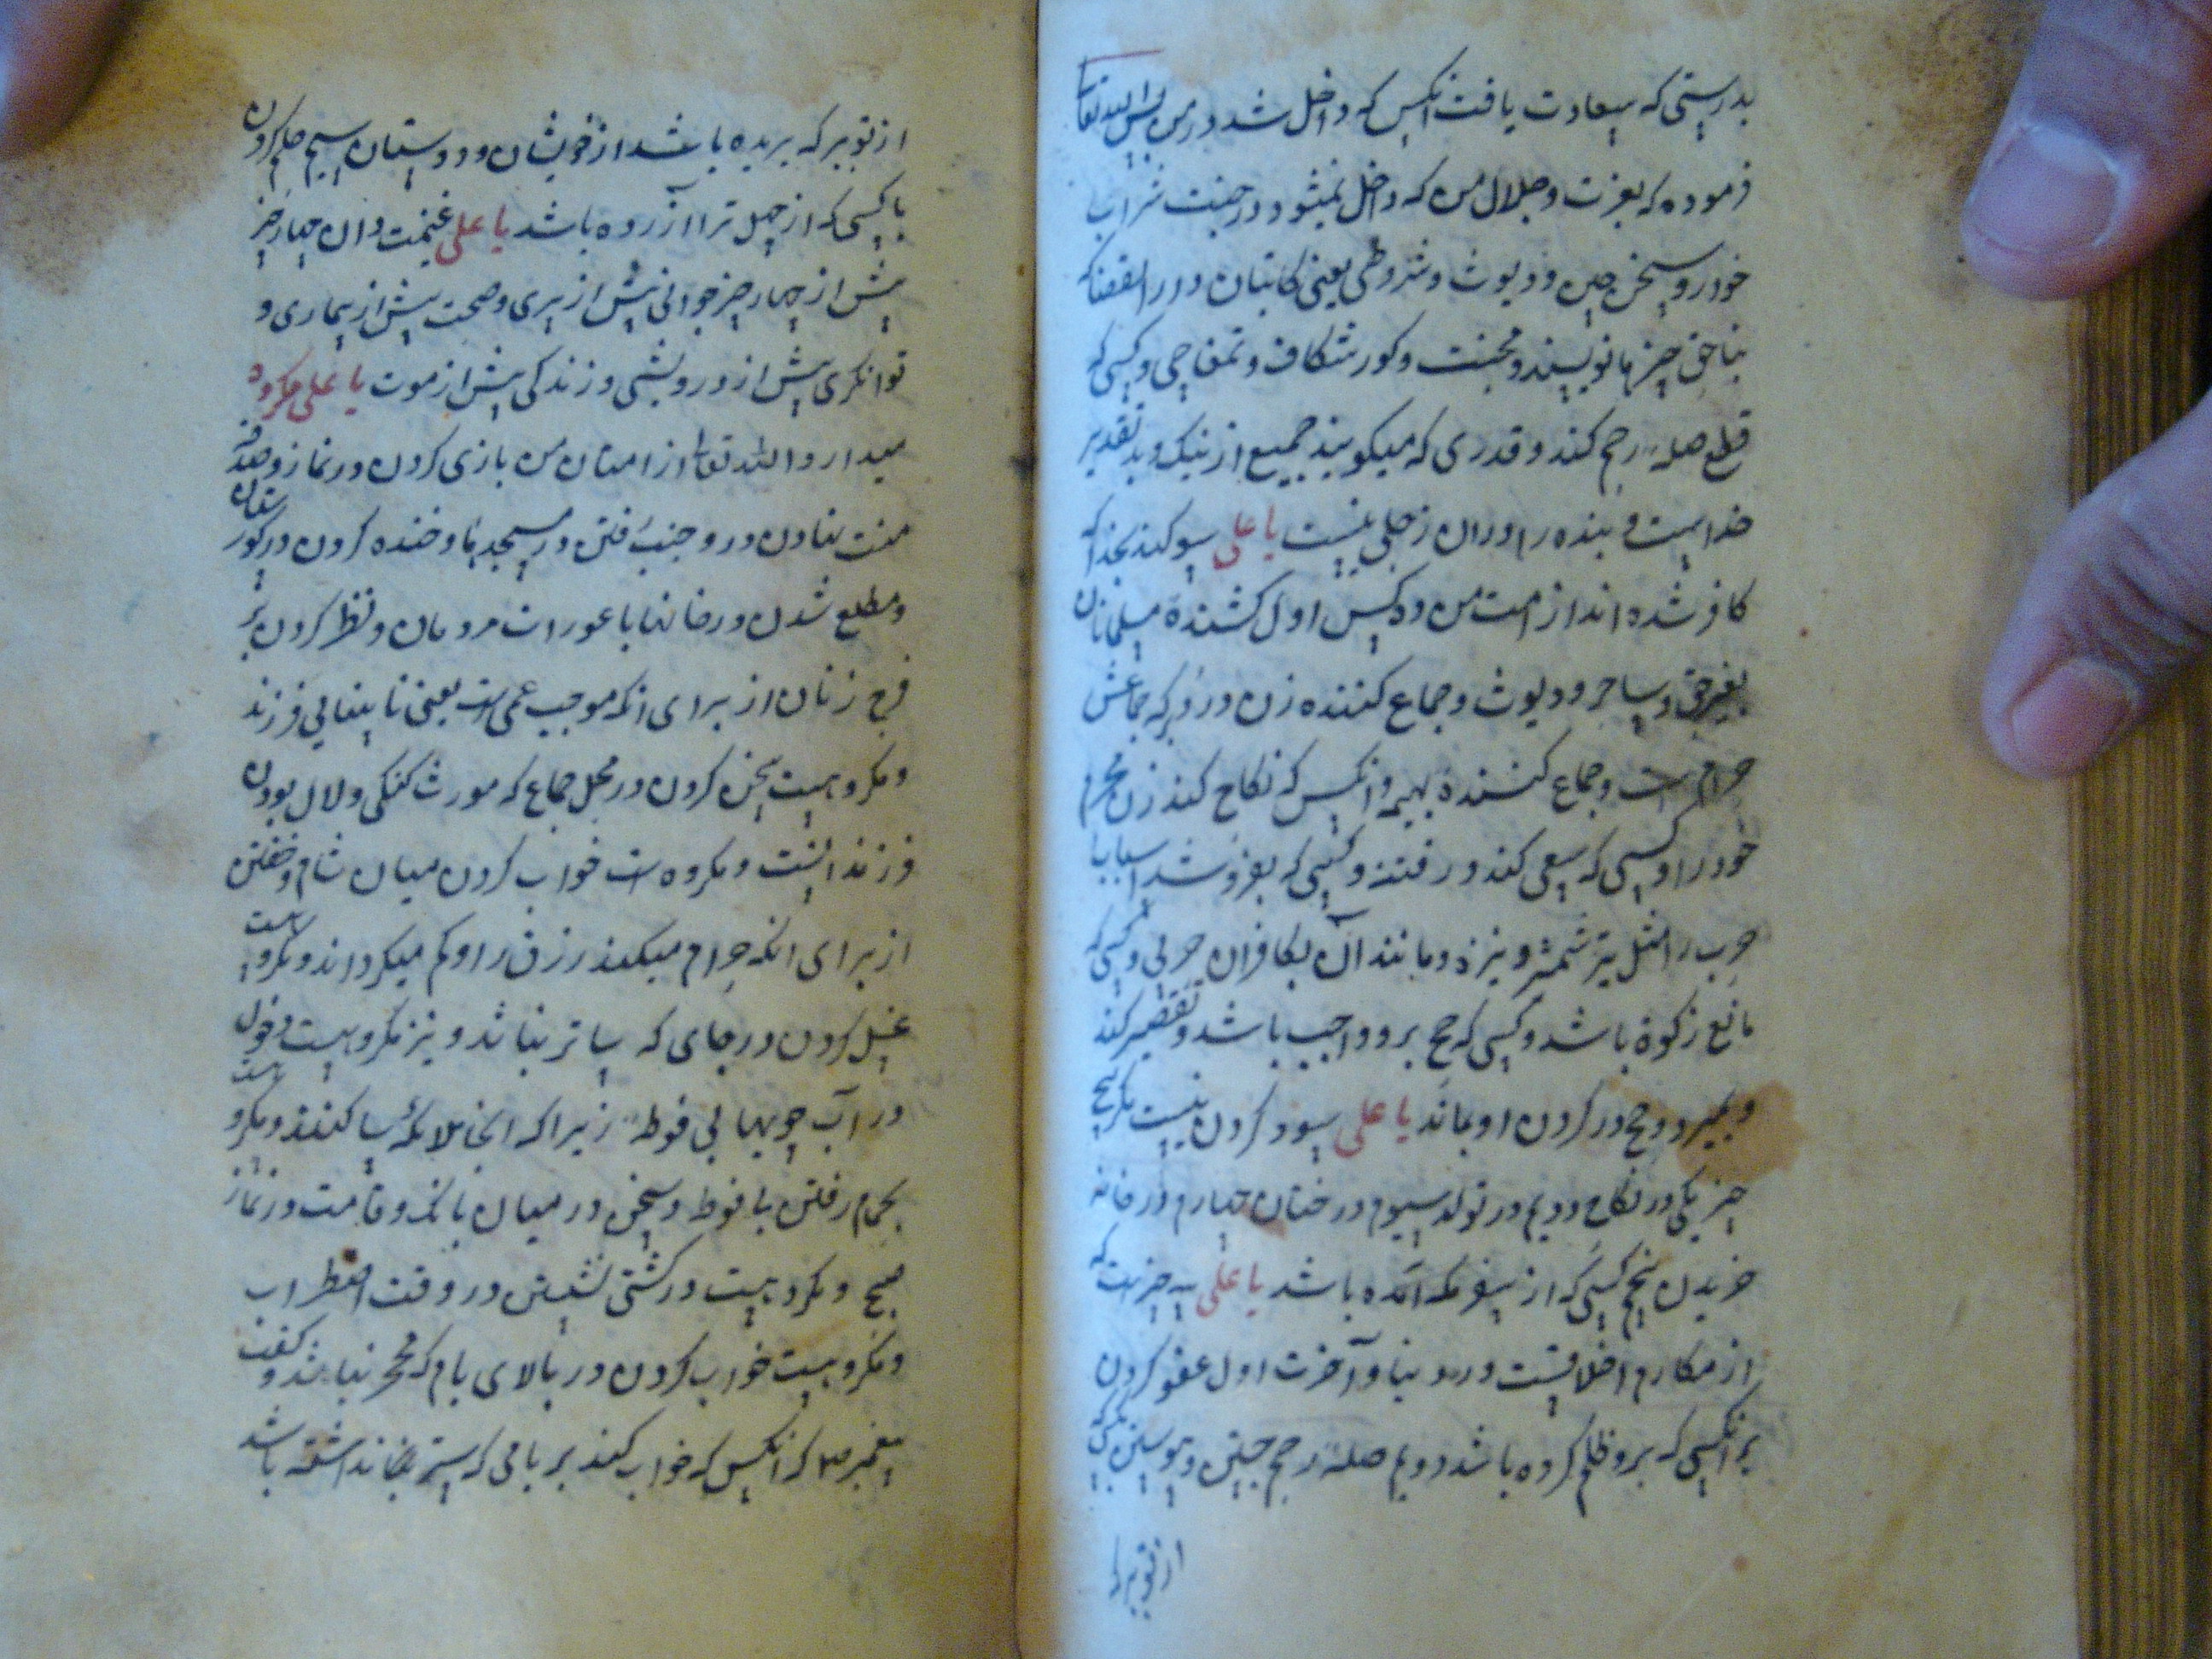 بدرستی که سعادت یافت انکس که داخل شد در من پس الله تعا
فرموده که بعزت و جلال من که داخل نمیشود در جنت شراب
خور و سخن چین و دیوث و شروطی یعنی کاتبان دار القضا که
بناحق چیزها نویسند و مخنث و کور شکاف و تمغاچی و کسی که
قطع صله رحم کند و قدری که میکویند جمیع از نیک و بد تقدیر
خداست و بنده را در ان دخلی نیست یا علی سوکند بخدا که
کافر شده اند از امت من ده کس اول کشنده مسلمانان
بغیر حق و ساحر و دیوث و جماع کننده زن در دبر که جماعش
حرام است و جماع کننده بهیمه و انکس که نکاح کند زن محرم
خود را و کسی که سعی کند در فتنه و کسی که بفروشد اسباب
حرب را مثل تیر شمشیر و نیزه و مانند آن بکافران حربی و کسی که
مانع زکوة باشد و کسی که حج برو واجب باشد و تقصیر کند
و بمیرد و حج در کردن او بماند یا علی سود کردن نیست مکر پنج
چیز یکی در نکاح دویم در تولد سیوم در ختان چهارم در خانه
خریدن پنجم کسی که از سفر مکه آمده باشد یا علی سه چیز است که
از مکارم اخلاقست در دنیا و آخرت اول عفو کردن
بر انکسی که برو ظلم کرده باشد دویم صله رحم جستن و پیوستن بکسی که
از تو ببر که
از تو ببر که بریده باشد از خویشان و دوستان سیم حلم کردن
با کسی که از جهل ترا آزرده باشد یا علی غنیمت دان چهار چیز
پیش از چهار چیز جوانی پیش از پیری و صحت پیش از بیماری و
توانکری پیش از درویشی و زندکی پیش از موت یا علی مکروه
میدارد الله تعا از امتان من بازی کردن در نماز و صدقه
منت نهادن در و جنب رفتن در مسجدها و خنده کردن در کورستان
و مطلع شدن در خانها با عورات مردمان و نظر کردن بر
فرج زنان از برای انکه موجب عمی است یعنی نابینایی فرزند
و مکروهست سخن کردن در محل جماع که مورث کنکی و لال بودن
فرزند انست و مکروه است خواب کردن میان شام و خفتن
از برای انکه حرام میکند رزق را و کم میکرداند و مکروهست
غسل کردن در جای که ساتر نباشد و نیز مکروهست دخول
در آب جویها بی فوطه زیرا که انجا ملائکه ساکنند و مکروهست
بحمام رفتن با فوطه و سخن در میان بانک و قامت در نماز
صبح و مکروهست در کشتی نشستن در وقت اضطراب
و مکروهست خواب کردن در بالای بام که محجر نباشد و کفت
پیغمبر ص که انکس که خواب کند بر بامی که ستر نداشته باشد